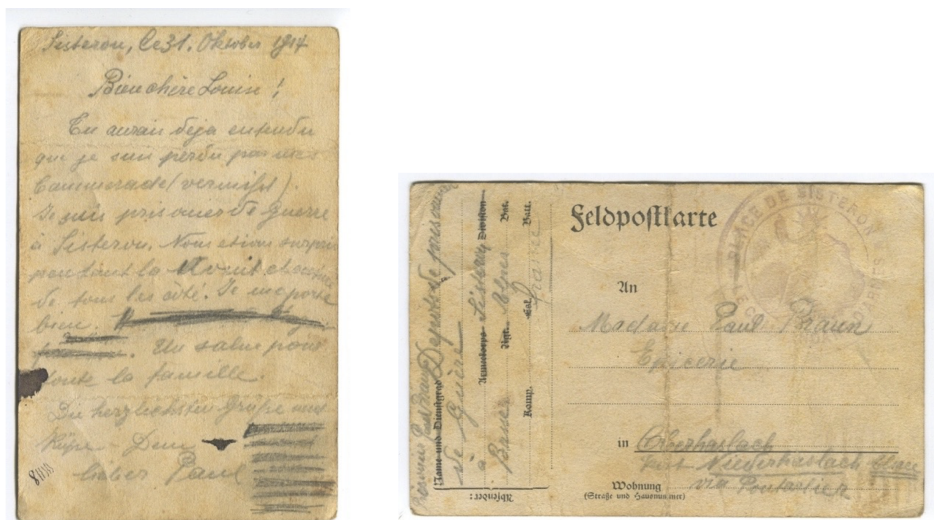 Sisteron, le 31. Oktober 1917
Bien chère Louise !
Tu auras deja entendu
que je suis perdu par mes
Cammerade (vermisst).
Je suis prisoner de guerre
à Sisteron. Nous etions surpris
pendant la nuit et
de tous les côté. Je me porte
bien.
Un salut pour
toute la famille.
Die herzlichsten Grüße und
Küsse Dein
lieber Paul
Feldpostkarte
PLACE DE SISTERON
An
Madame Paul Braun
Epicerie
in Oberhaslach
Post Niederhaslach Elsace
via Pontarlier
Wohnung
(Straße und Hausnummer)
Absender:
Name und Dienstgrad
Depot de prisonnier
de Guère
Armeekorps Division
à Sisteron
Rgt. Bat.
Basses Alpes
Komp. Esk. Batt.
France